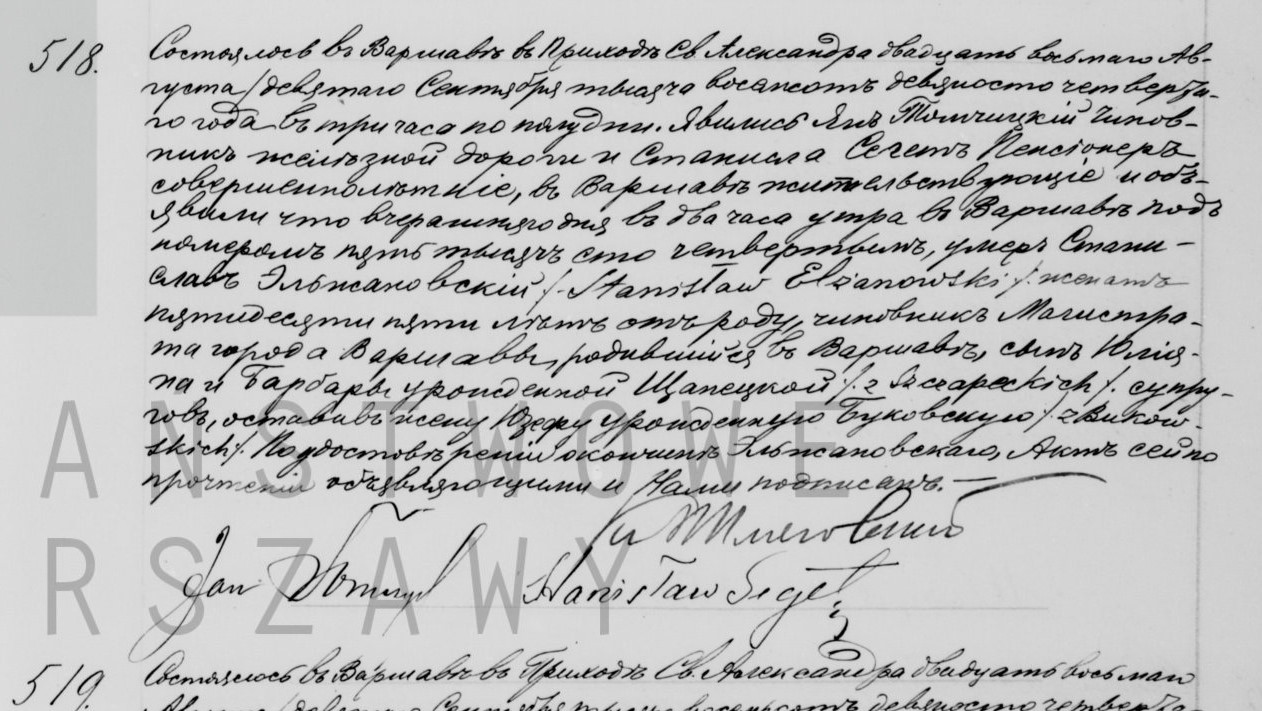 518.
Состоялось въ Варшавѣ въ Приходѣ Св. Александра двадцать восьмаго Ав-
густа /девятаго Сентября тысяча восемсотъ девяносто четверта-
го года въ три часа по полудни. Явились Янъ Томчицкій чинов-
никъ желѣзной дороги и Станисла Сегетъ Пенсіонеръ
совершеннолѣтніе, въ Варшавѣ жительствующіе и объ-
явили что вчерашняго дня въ два часа утра въ Варшавѣ подъ
номеромъ пять тысячъ сто четвертымъ, умеръ Стани-
славъ Эльжановскій /. Stanisław Elżanowski /. женатъ
пятидесяти пяти лѣтъ отъ роду, чиновникъ Магистра-
та города Варшавы, родившійся въ Варшавѣ, сынъ Юлія-
на и Барбары урожденной Щапецкой /. z Szczapeckich /. супру-
говъ, оставивъ жену Юзефу урожденную Буковскую /. z Bukow-
skich /. По удостовѣреніи о кончинѣ Эльжановскаго, Актъ сей по
прочтеніи объявляющими и Нами подписанъ. —
Jan Stanisław Seget
AŃSTWOWE
RSZAWY
519.
Состоялось въ Варшавѣ въ Приходѣ Св. Александра двадцать восьмаго
Августа /девятаго Сентября тысяча восемсотъ девяносто четверта-